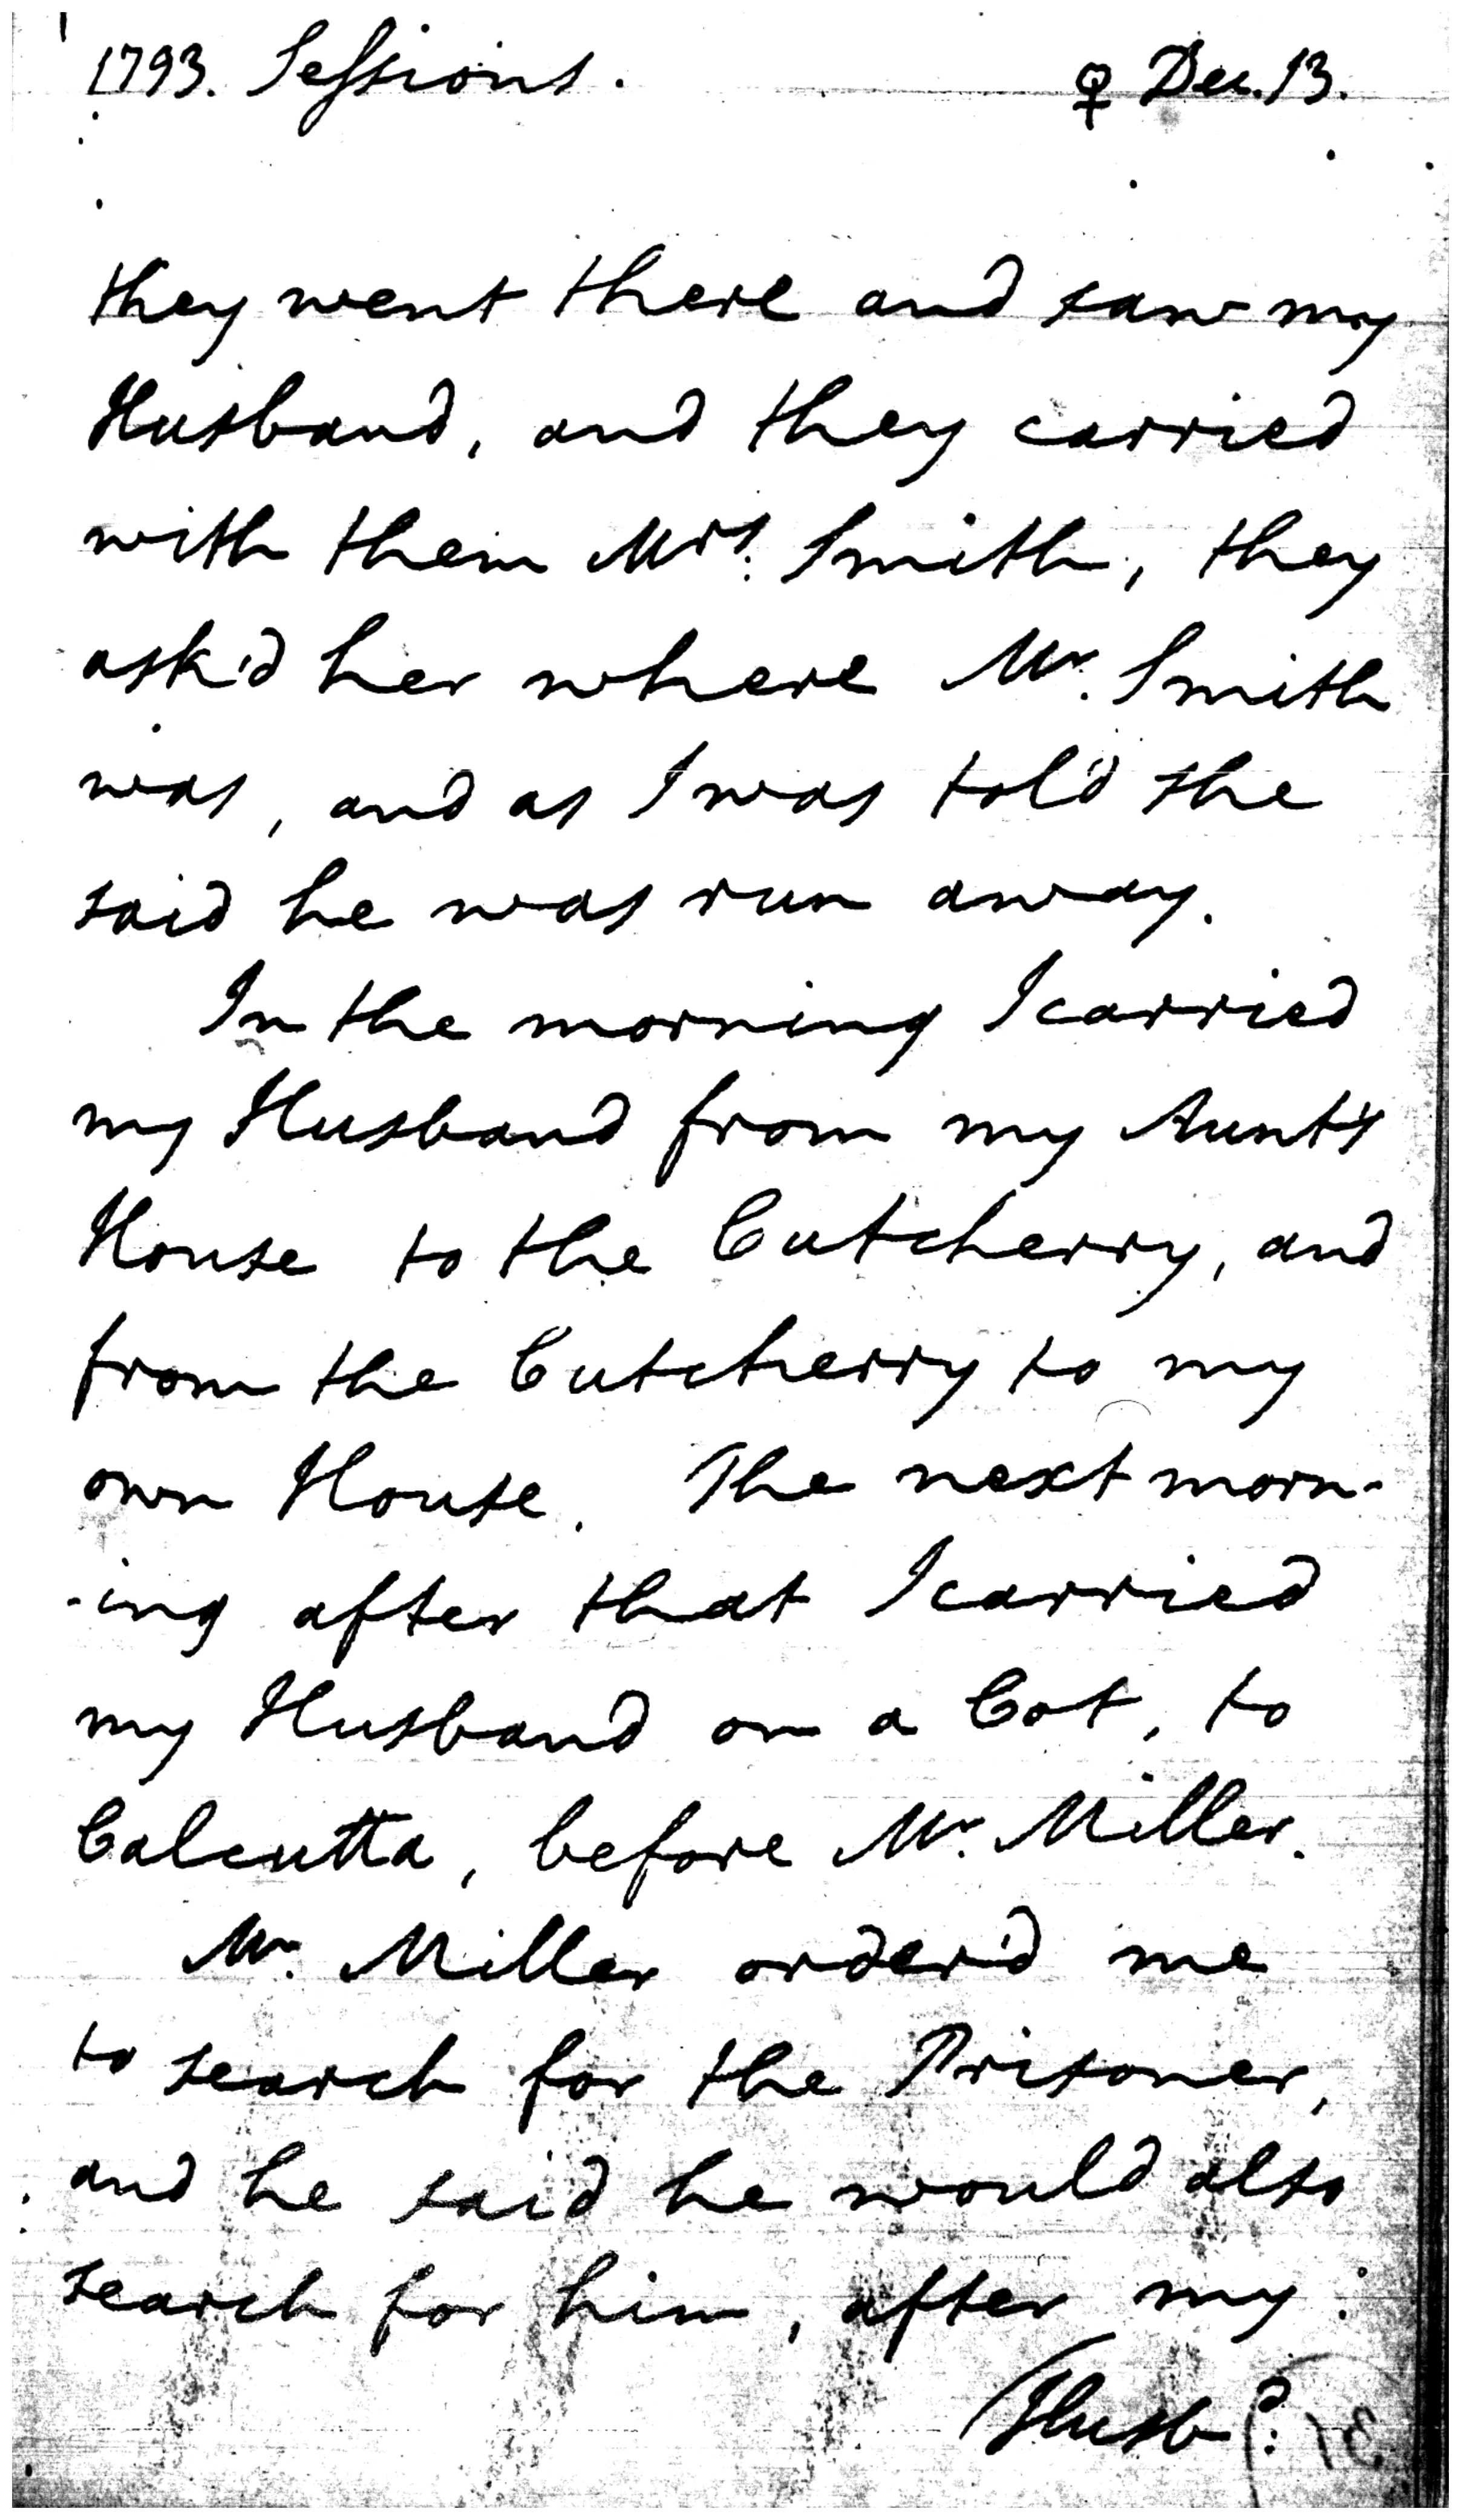 1793. Sessions. ♀ Dec. 13.
they went there and saw my
Husband, and they carried
with them Mrs. Smith, they
ask'd her where Mr. Smith
was, and as I was told she
said he was run away.
In the morning I carried
my Husband from my Aunt's
House to the Cutcherry, and
from the Cutcherry to my
own House. The next morn-
-ing after that I carried
my Husband on a Cot, to
Calcutta, before Mr. Miller.
Mr. Miller order'd me
to search for the Prisoner,
and he said he would also
search for him, after my
Husbd.